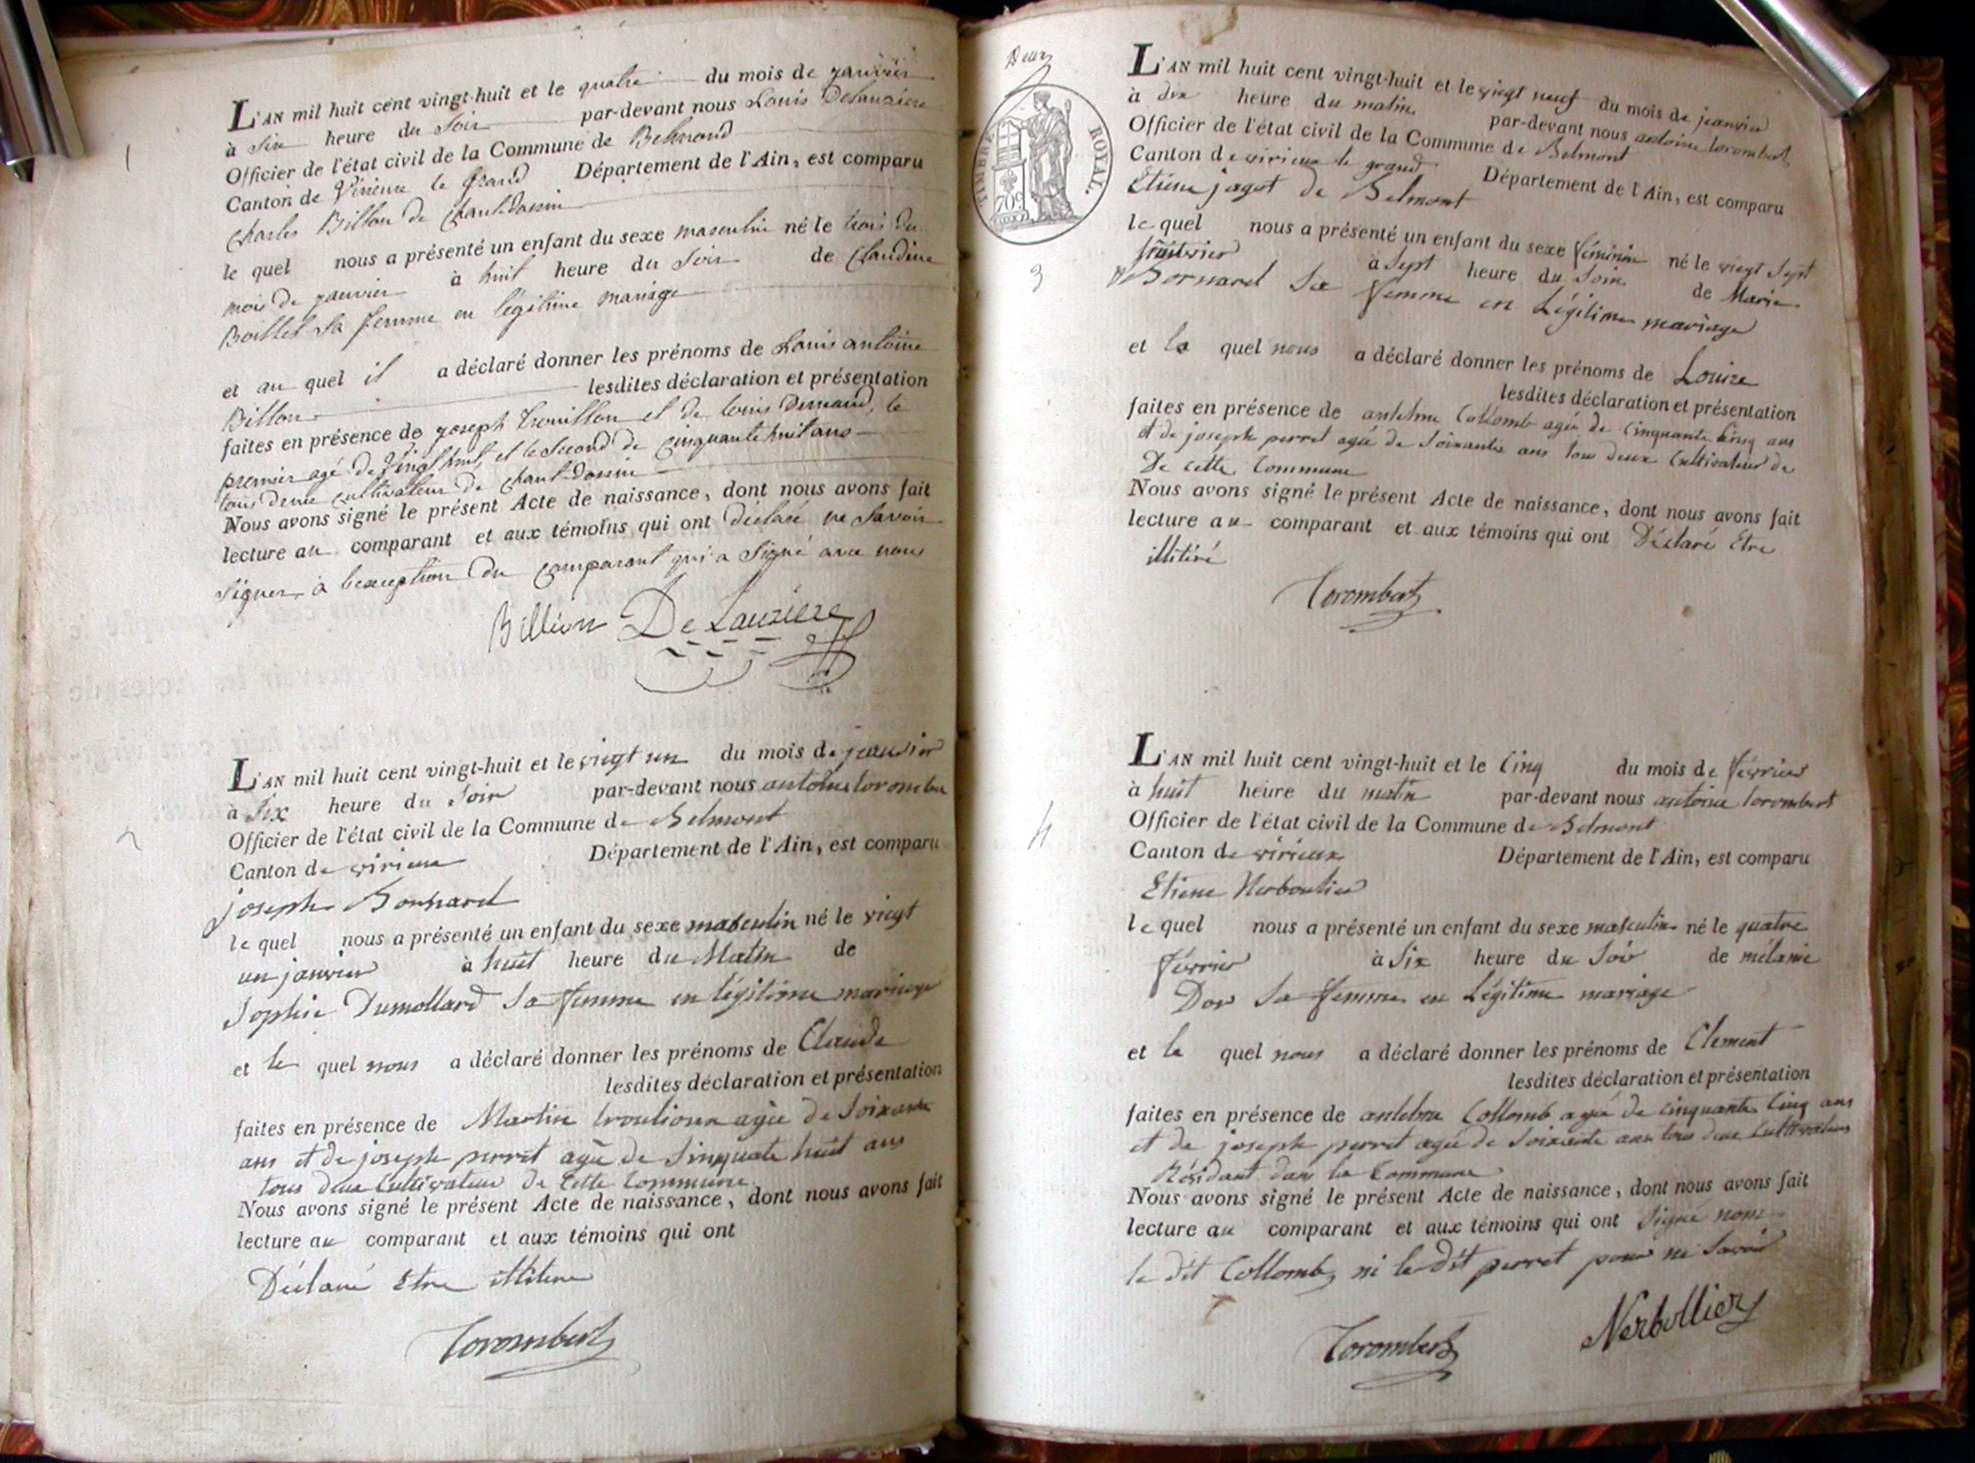 1
L'AN mil huit cent vingt-huit et le quatre du mois de janvier
à Six heure du Soir par-devant nous Louis Delauziere
Officier de l'état civil de la Commune de Belmond
Canton de Virieux le Grand Département de l'Ain, est comparu
Charles Billon de Chant-dossin
le quel nous a présenté un enfant du sexe masculin né le trois du
mois de janvier à huit heure du Soir de Claudine
Boillet Sa femme en légitime mariage
et au quel il a déclaré donner les prénoms de Louis antoine
Billon lesdites déclaration et présentation
faites en présence de joseph trouillon et de louis Dumand, le
premier agé de Vingt huit, et le Second de Cinquante huit ans
tous deux cultivateur de Chant-dossin
Nous avons signé le présent Acte de naissance, dont nous avons fait
lecture au comparant et aux témoins qui ont déclaré ne Savoir
Signer, à lexception du Comparant qui a Signé avec nous
Billion DeLauziere
2
L'AN mil huit cent vingt-huit et le vingt un du mois de janvier
à Six heure du Soir par-devant nous antoine torombert
Officier de l'état civil de la Commune de Belmont
Canton de virieux Département de l'Ain, est comparu
joseph Bonnard
le quel nous a présenté un enfant du sexe masculin né le vingt
un janvier à huit heure du Matin de
Sophie Dumollard Sa femme en légitime mariage
et le quel nous a déclaré donner les prénoms de Claude
lesdites déclaration et présentation
faites en présence de Martin trouliour agée de Soixante
ans et de joseph perret agée de Sinquate huit ans
tous deux Cultivateur de Cette Commune
Nous avons signé le présent Acte de naissance, dont nous avons fait
lecture au comparant et aux témoins qui ont
Déclaré Etre illitere
Torombert
Deux
TIMBRE ROYAL.
709
3
L'AN mil huit cent vingt-huit et le vingt neuf du mois de jeanvier
à dix heure du matin par-devant nous antoine torombert
Officier de l'état civil de la Commune de Belmont
Canton de virieux le grand Département de l'Ain, est comparu
Etiene jagot de Belmont
le quel nous a présenté un enfant du sexe féminin né le vingt Sept
janvier à Sept heure du Soir de Marie
Bornard Sa femme en Légitime mariage
et la quel nous a déclaré donner les prénoms de Louise
lesdites déclaration et présentation
faites en présence de antelme Collomb agée de Cinquante Cinq ans
et de joseph perret agée de Soixante ans tous deux Cultivateur de
De cette Commune
Nous avons signé le présent Acte de naissance, dont nous avons fait
lecture au comparant et aux témoins qui ont Déclaré Etre
illitéré
Torombert
4
L'AN mil huit cent vingt-huit et le Cinq du mois de février
à huit heure du matin par-devant nous antoine torombert
Officier de l'état civil de la Commune de Belmont
Canton de virieux Département de l'Ain, est comparu
Etiene Nerboulier
le quel nous a présenté un enfant du sexe masculin né le quatre
février à Six heure du Soir de mélanie
Dor Sa femme en Légitime mariage
et le quel nous a déclaré donner les prénoms de Clement
lesdites déclaration et présentation
faites en présence de antelme Collomb agée de Cinquante Cinq ans
et de joseph perret agée de Soixante ans tous deux Cultivateurs
Résidant dans la Commune
Nous avons signé le présent Acte de naissance, dont nous avons fait
lecture au comparant et aux témoins qui ont Signé nom
le dit Collomb, ni le dit perret pour ne Savoir
Torombert Nerbollier